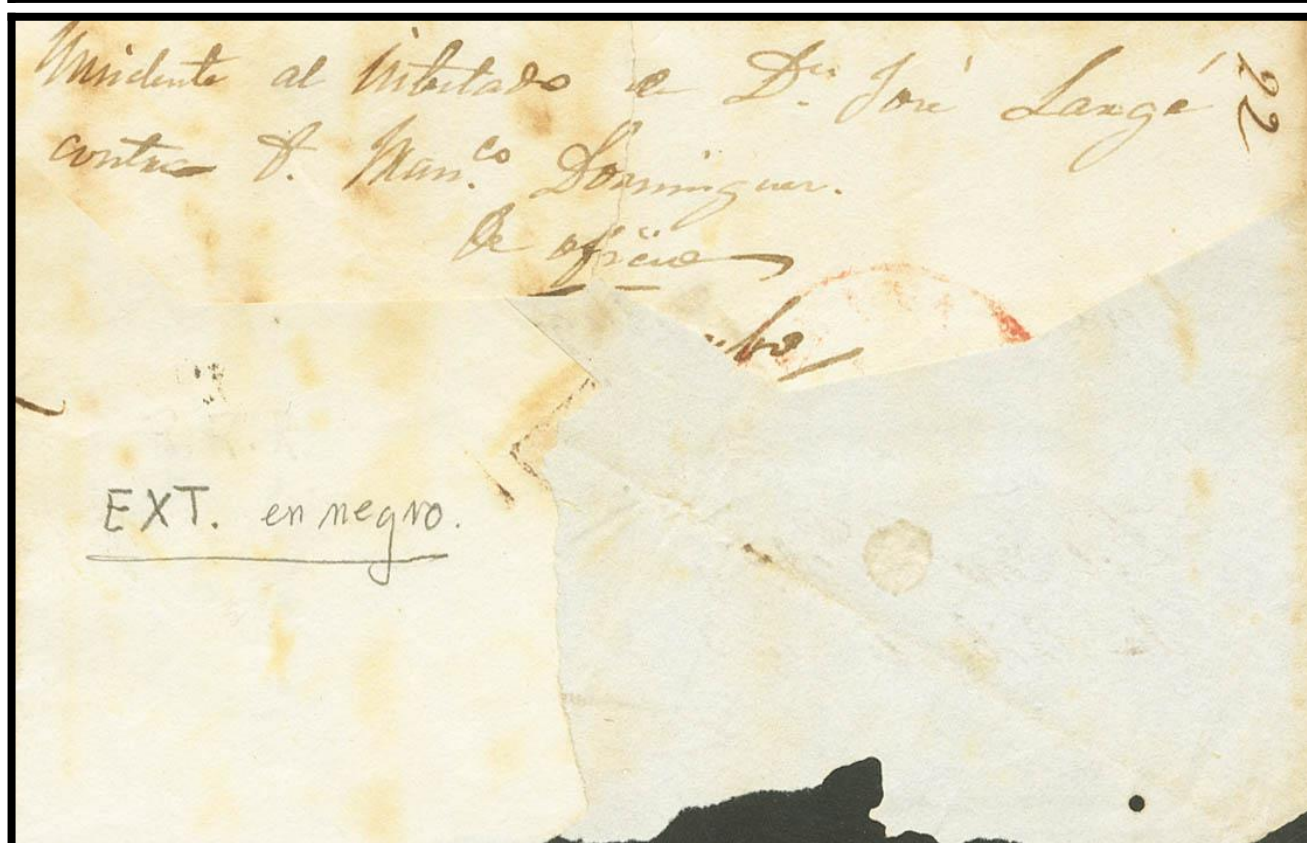 Insidente al intestado de Dn. José Langé
contra D. Man.co Dominguez.
De oficio
22
EXT. en negro.